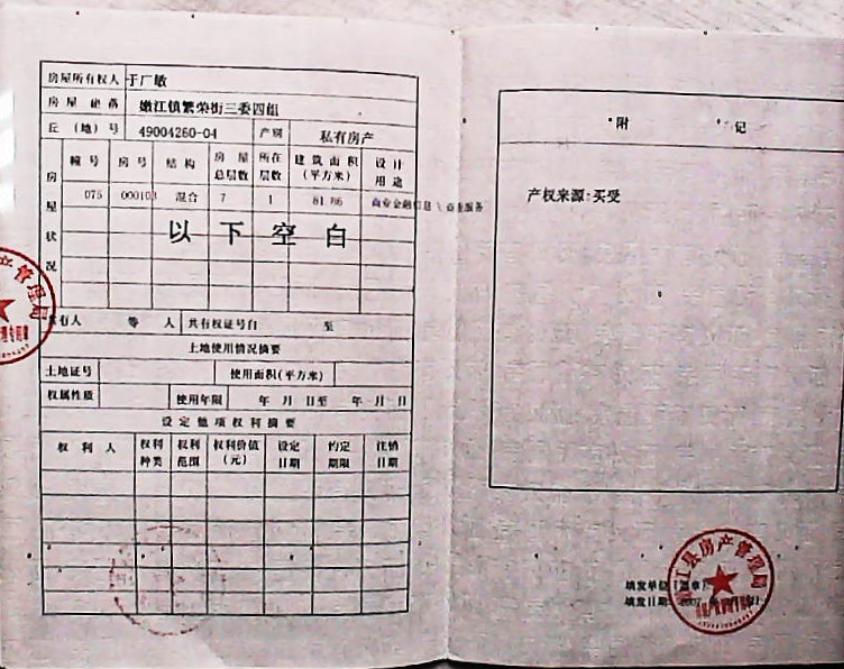 房屋所有权人 于广敏
房屋坐落 嫩江镇繁荣街三委四组
丘（地）号 49004260-04 产别 私有房产
房屋状况
幢号 房号 结构 房屋总层数 所在层数 建筑面积（平方米） 设计用途
075 000103 混合 7 1 81.86 商业金融信息/商业服务
以下空白
共有人 等 人 共有权证号自 至
土地使用情况摘要
土地证号 使用面积(平方米)
权属性质 使用年限 年 月 日至 年 月 日
设定他项权利摘要
权利人 权利种类 权利范围 权利价值（元） 设定日期 约定期限 注销日期
附 记
产权来源:买受
嫩江县房产管理局
填发单位（盖章）
填发日期:
产管理局